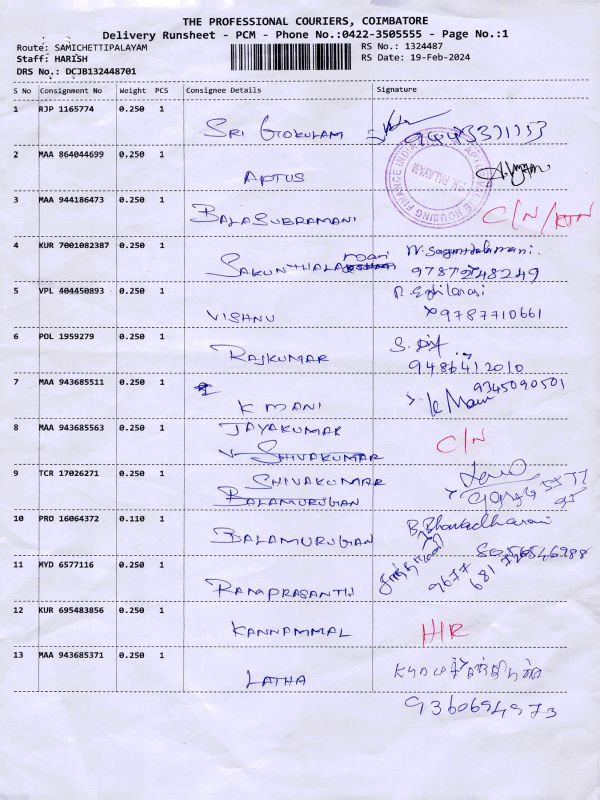 THE PROFESSIONAL COURIERS, COIMBATORE
Delivery Runsheet - PCM - Phone No.:0422-3505555 - Page No.:1
Route: SAMICHETTIPALAYAM
RS No.: 1324487
Staff: HARISH
RS Date: 19-Feb-2024
DRS No.: DCJB132448701
S No Consignment No Weight PCS Consignee Details Signature
1 RJP 1165774 0.250 1 SRI GOKULAM
2 MAA 864044699 0.250 1 APTUS
3 MAA 944186473 0.250 1 BALASUBRAMANI C/N/RTN
4 KUR 7001082387 0.250 1 SAKUNTHALAMANI
9787248249
5 VPL 404450893 0.250 1 VISHNU
9787710661
6 POL 1959279 0.250 1 RAJKUMAR
9486412010
7 MAA 943685511 0.250 1 K MANI 9345090501
8 MAA 943685563 0.250 1 JAYAKUMAR C/N
SHIVAKUMAR
9 TCR 17026271 0.250 1 SHIVAKUMAR
BALAMURUGAN
10 PRO 16064372 0.110 1 BALAMURUGAN
11 MYD 6577116 0.250 1 RAMPRASANTH
12 KUR 695483856 0.250 1 KANNAMMAL H/R
13 MAA 943685371 0.250 1 LATHA
9360694973